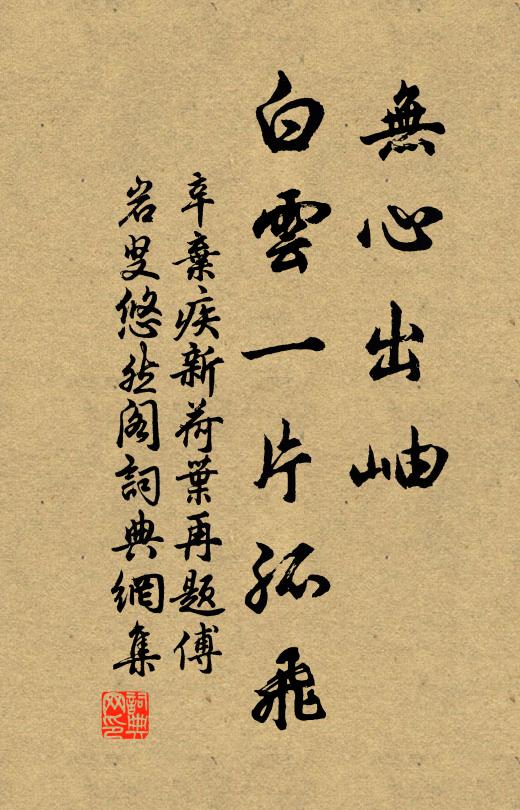 無心出岫
白雲一片孤飛
辛棄疾新荷葉再題傅
岩叟悠然閣詞典網集
詞典
网印